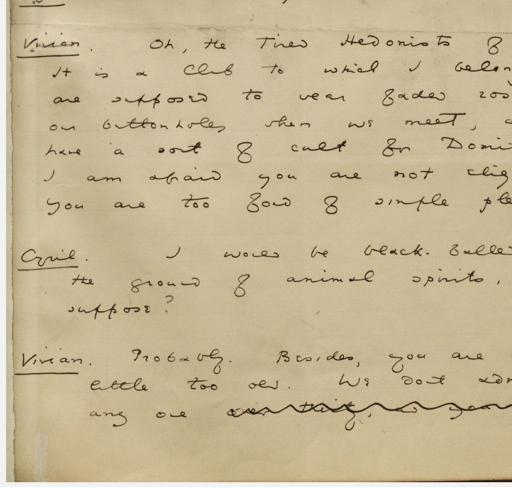 Vivian. Oh, the Tired Hedonists of
It is a club to which I belong
are supposed to wear faded ros
our buttonholes when we meet, a
have a sort of cult for Domi
I am afraid you are not elig
you are too fond of simple ple
Cyril. I would be black-balled
the ground of animal spirits,
suppose?
Vivian. Probably. Besides, you are
little too old. We dont adm
any one